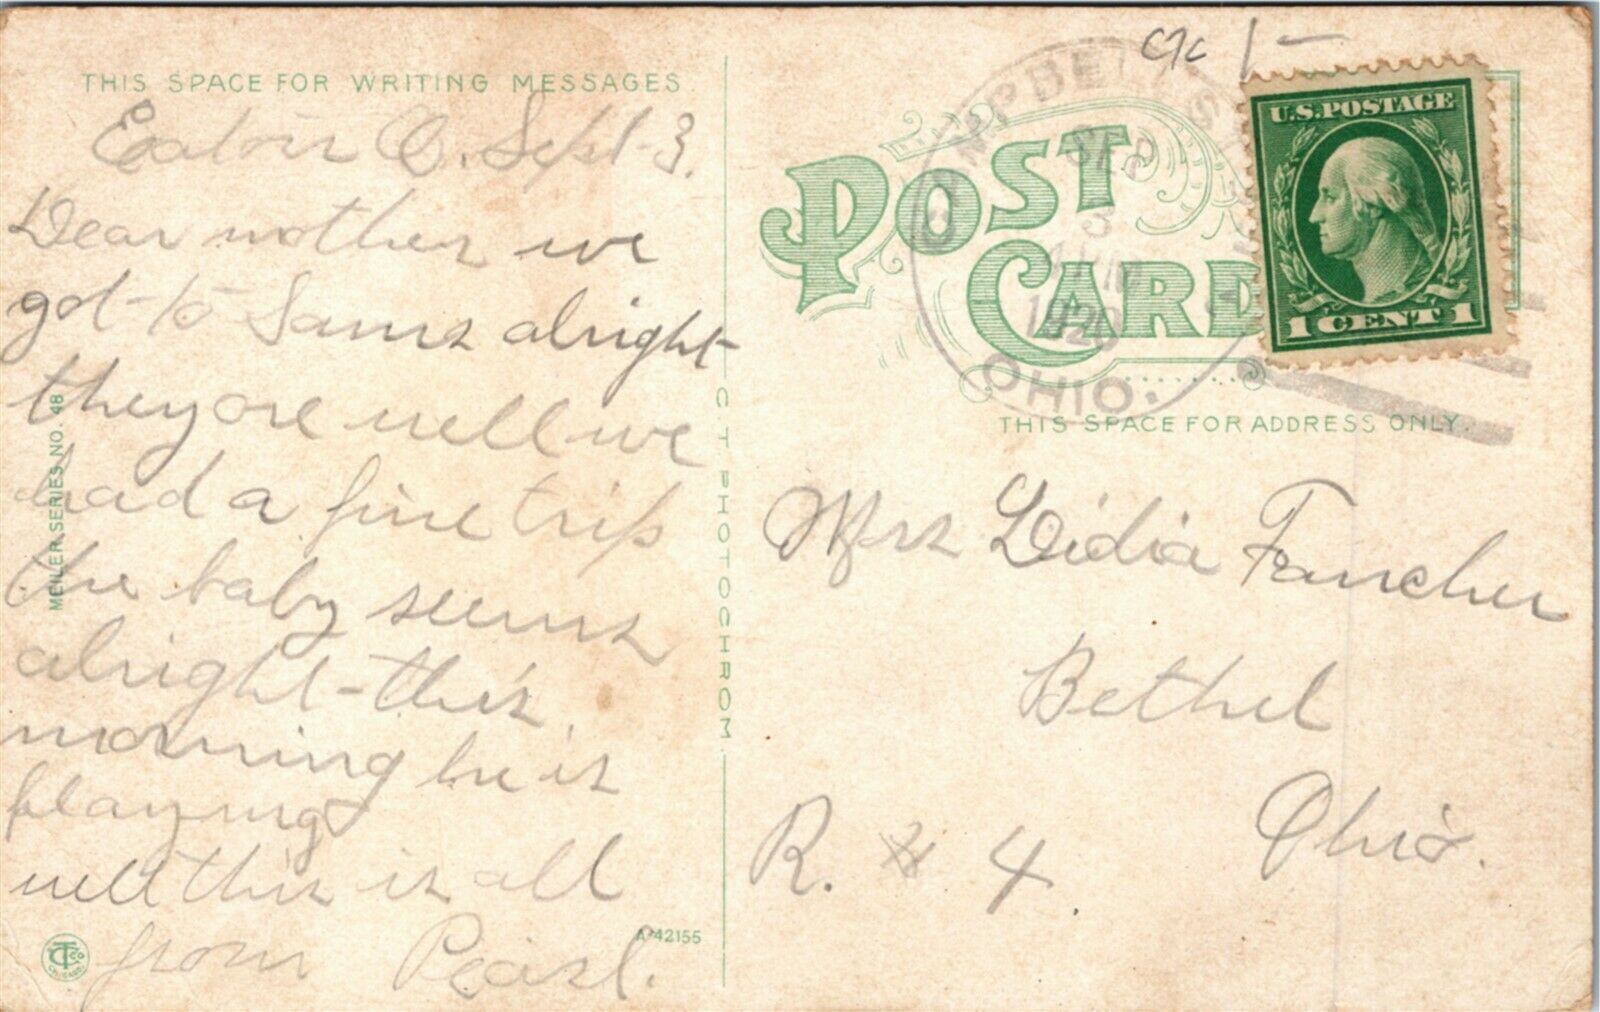 THIS SPACE FOR WRITING MESSAGES
Eaton O. Sept-3.
Dear mother we
got to Sams alright
they are well we
had a fine trip
the baby seems
alright this
morning he is
playing
well this is all
from Pearl.
MEILER SERIES NO. 48
C T PHOTOCHROM
A-42155
CHICAGO
C7C 1-
POST CARD
CAMPBELLSTOWN
SEP
3
1920
OHIO.
U.S. POSTAGE
1 CENT 1
THIS SPACE FOR ADDRESS ONLY.
Mrs Lidia Fancher
Bethel
Ohio.
R. # 4.